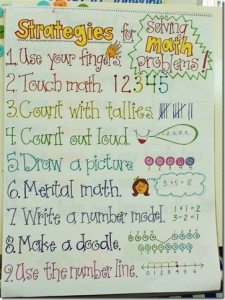 Strategies for solving
math
problems!
1. Use your fingers.
2. Touch math. 12345
3. Count with tallies.
4. Count out loud. 1, 2, 3, 4, 5
5. Draw a picture
6. Mental math. 3+5=8
7. Write a number model. 1+1=2
3-2=1
8. Make a doodle.
9. Use the number line.